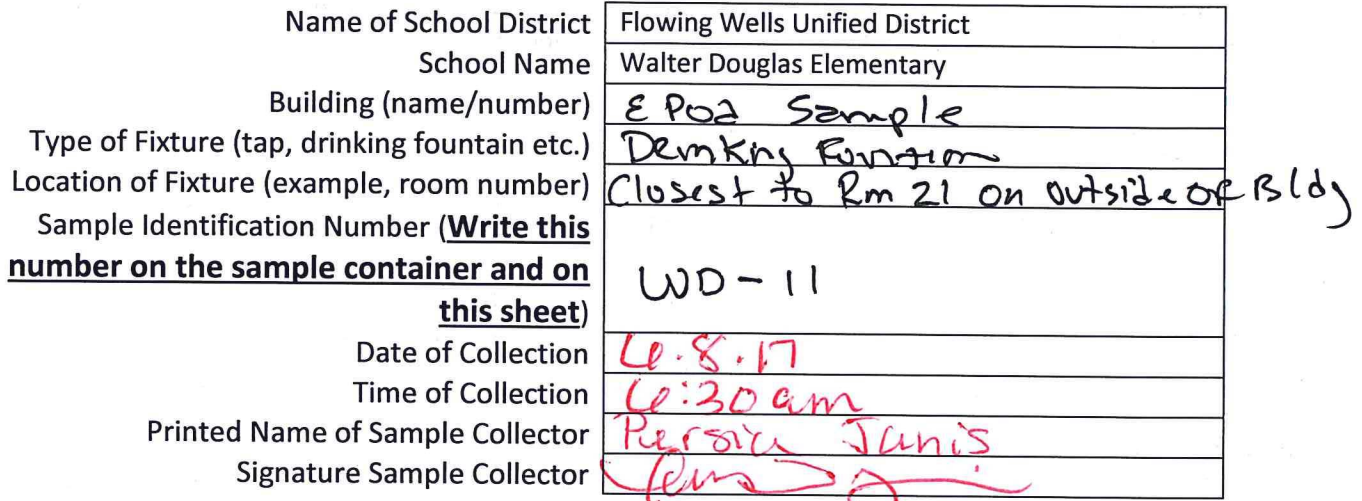 Name of School District Flowing Wells Unified District
School Name Walter Douglas Elementary
Building (name/number) E Pod Sample
Type of Fixture (tap, drinking fountain etc.)
Location of Fixture (example, room number) Closest to Rm 21 on outside of Bldg
Sample Identification Number (Write this
number on the sample container and on
this sheet) WD-11
Date of Collection 6.8.17
Time of Collection 6:30 am
Printed Name of Sample Collector Persia Janis
Signature Sample Collector